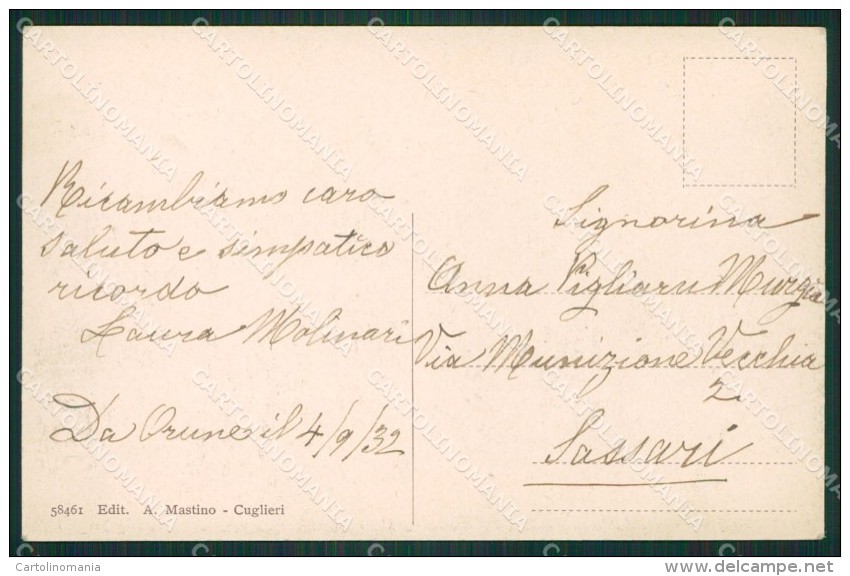 Ricambiamo caro
saluto e simpatico
ricordo
Laura Molinari
Da Orune il 4/9/32
58461 Edit. A. Mastino - Cuglieri
Signorina
Anna Pigliaru Murgia
Via Munizione Vecchia
2.
Sassari
CARTOLINOMANIA
Cartolinomania
www.delcampe.net